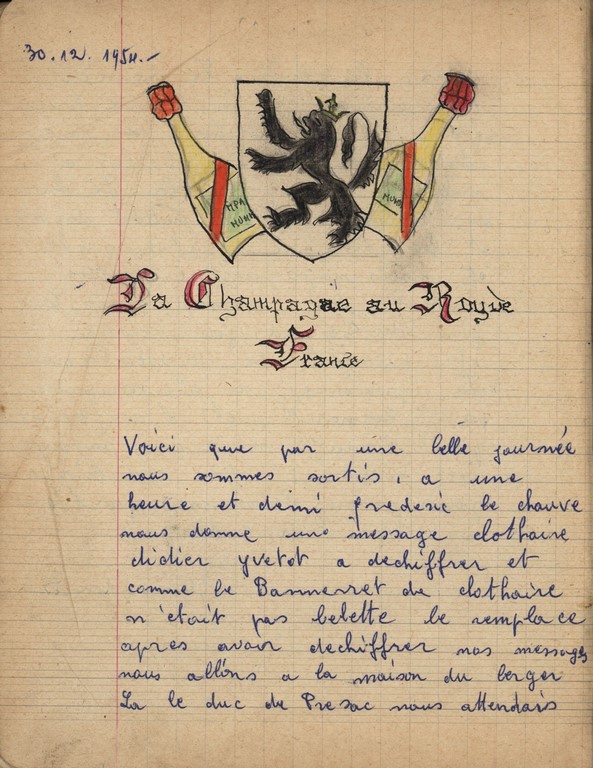 30.12.1954.-
MPA
MÜMM
MUMM
La Champagne au Royè
France
Voici que par une belle journée
nous sommes sortis, a une
heure et demi frederic le chauve
nous donne une message clothaire
didier yvetot a dechiffrer et
comme le Bannerret de clothaire
n'était pas belette le remplace
apres avoir dechiffrer nos messages
nous allons a la maison du berger
La le duc de Presac nous attendais